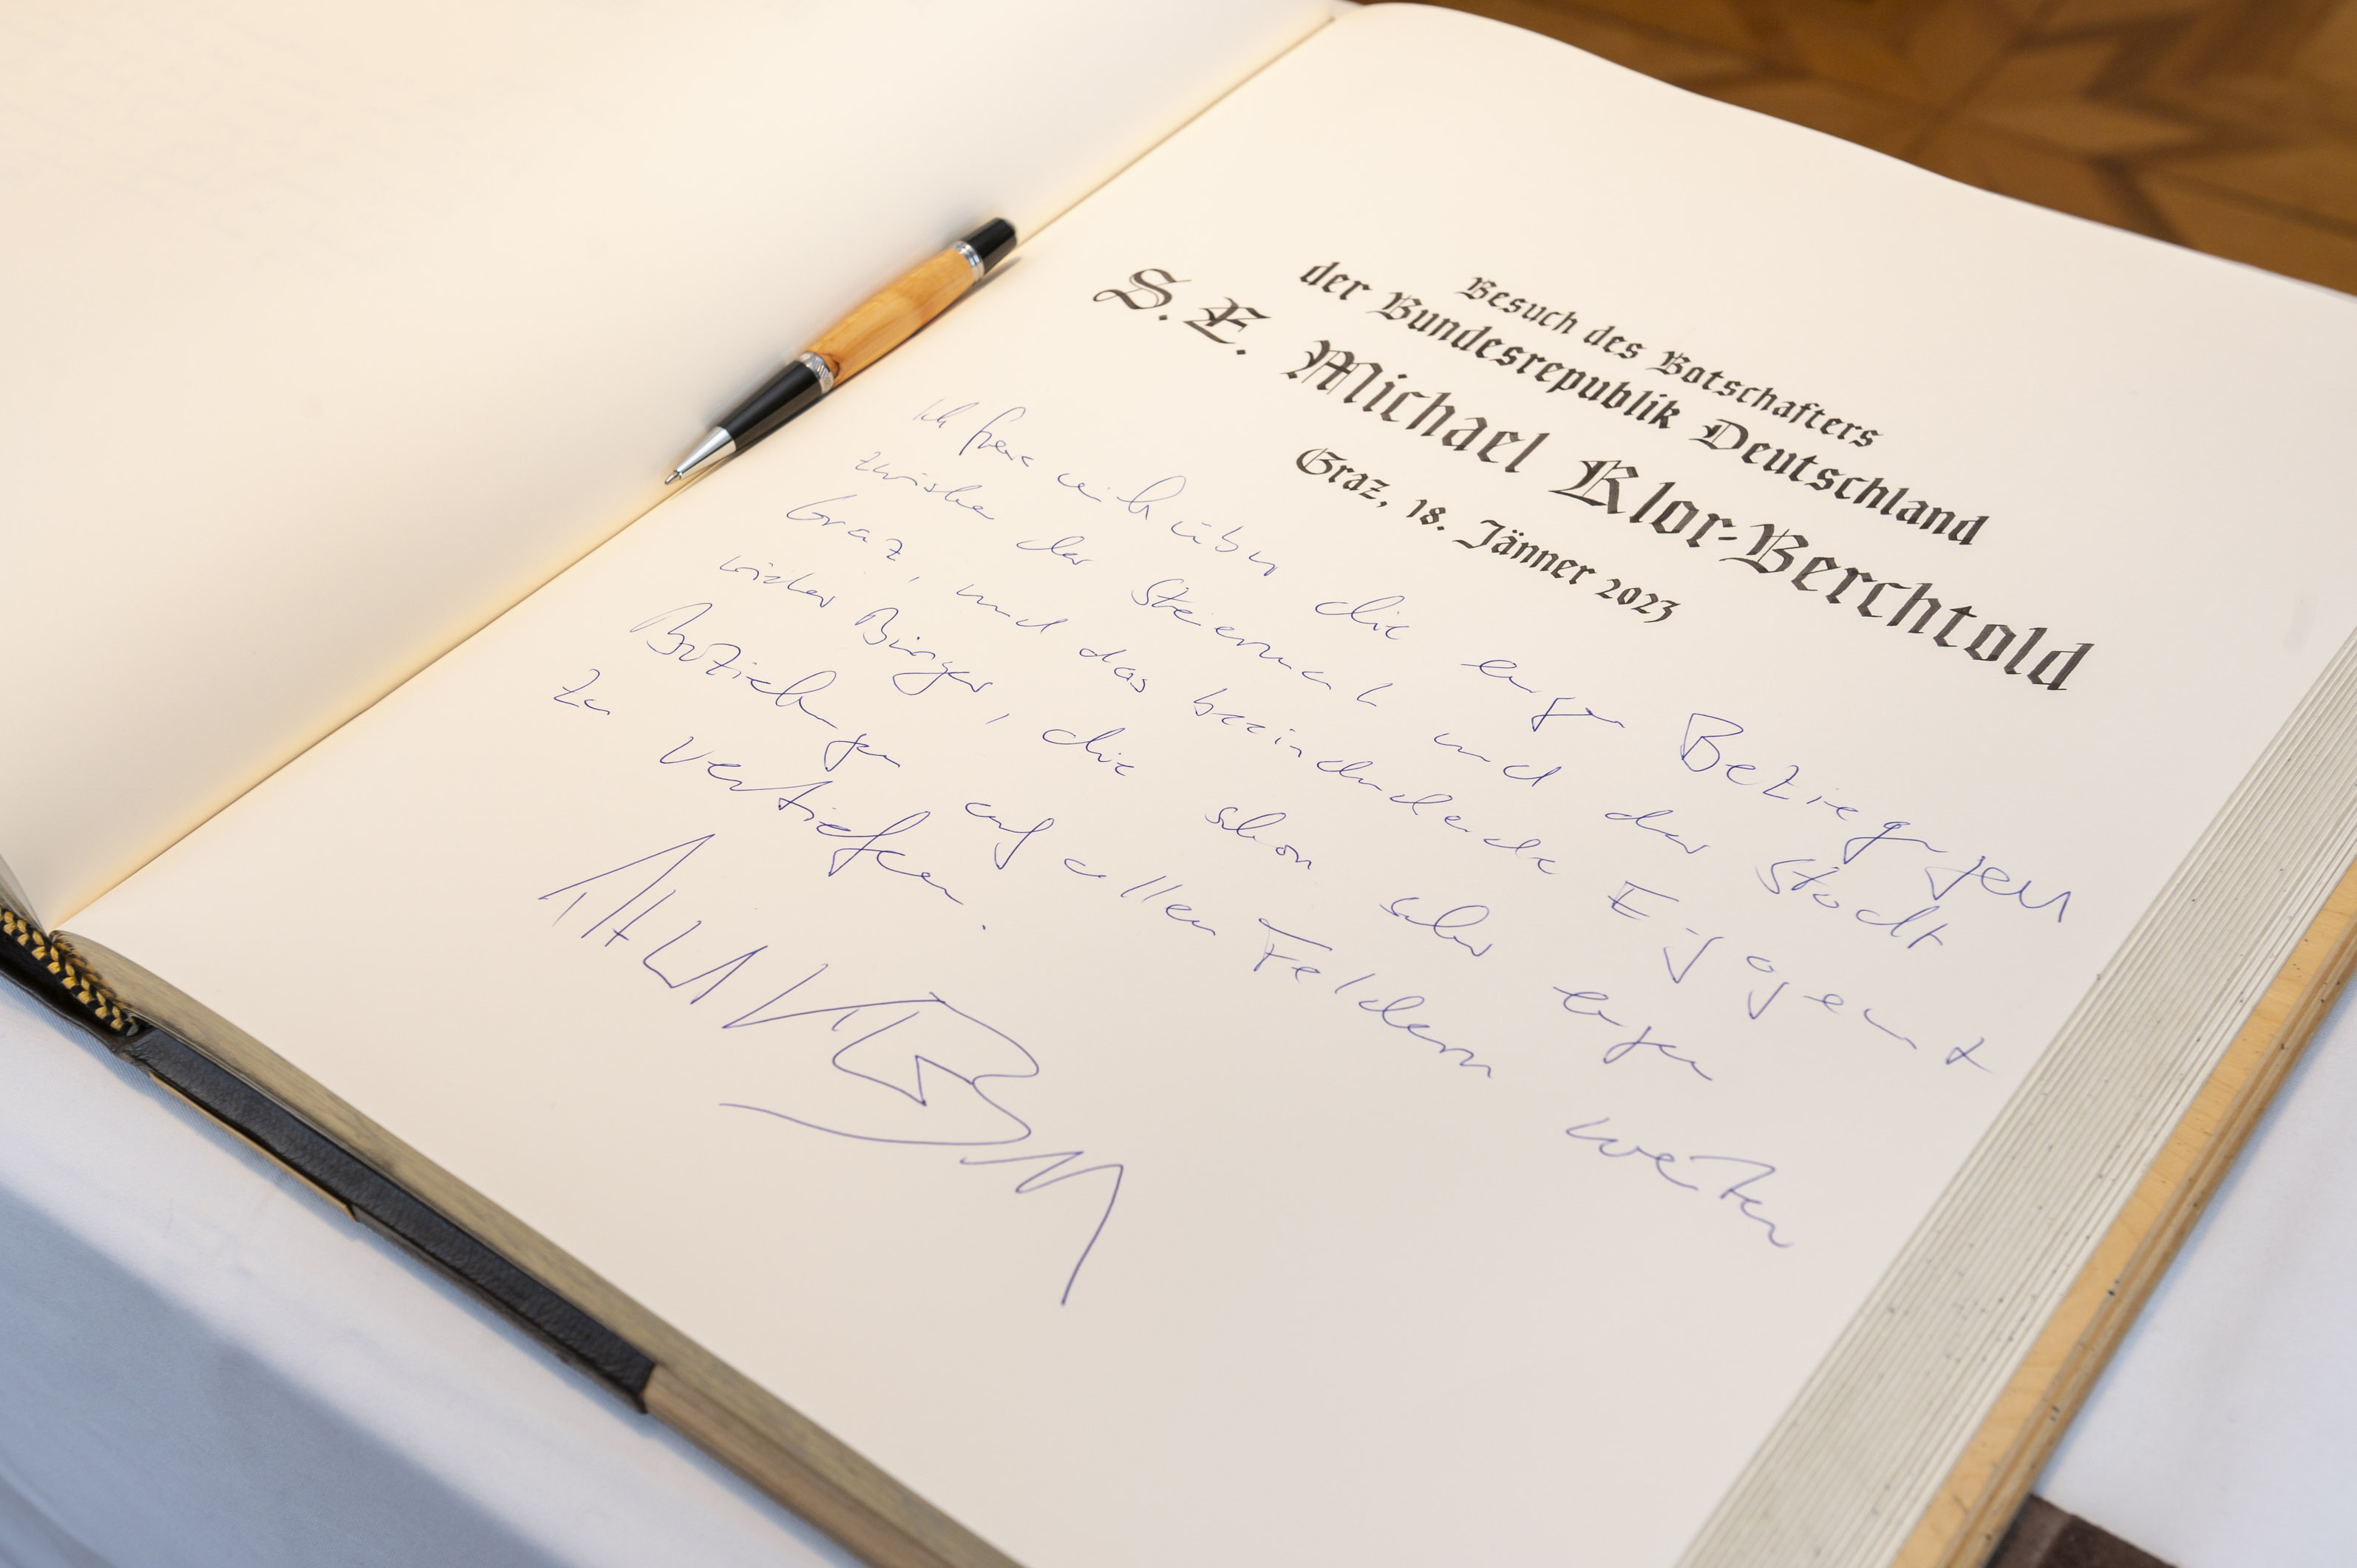 Besuch des Botschafters
der Bundesrepublik Deutschland
S.E. Michael Klor-Berchtold
Graz, 18. Jänner 2023
Ich freue mich über die engen Beziegungen
zwischen der Steiermark und der Stadt
Graz, und das beeindruckende
vieler Bürger, die schon sehr engen
Beziehungen auf allen Feldern weiter
zu vertiefen.